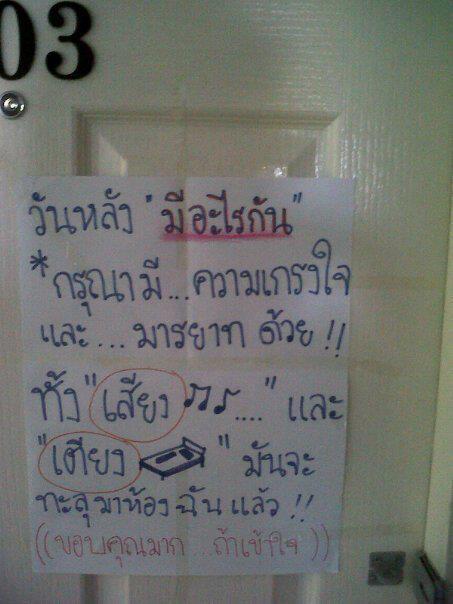 03
วันหลัง "มีอะไรกัน"
*กรุณามี...ความเกรงใจ
และ....มารยาท ด้วย !!
ทั้ง "เสียง ...." และ
"เตียง " มันจะ
ทะลุมาห้องฉันแล้ว !!
((ขอบคุณมาก ...ถ้าเข้าใจ))